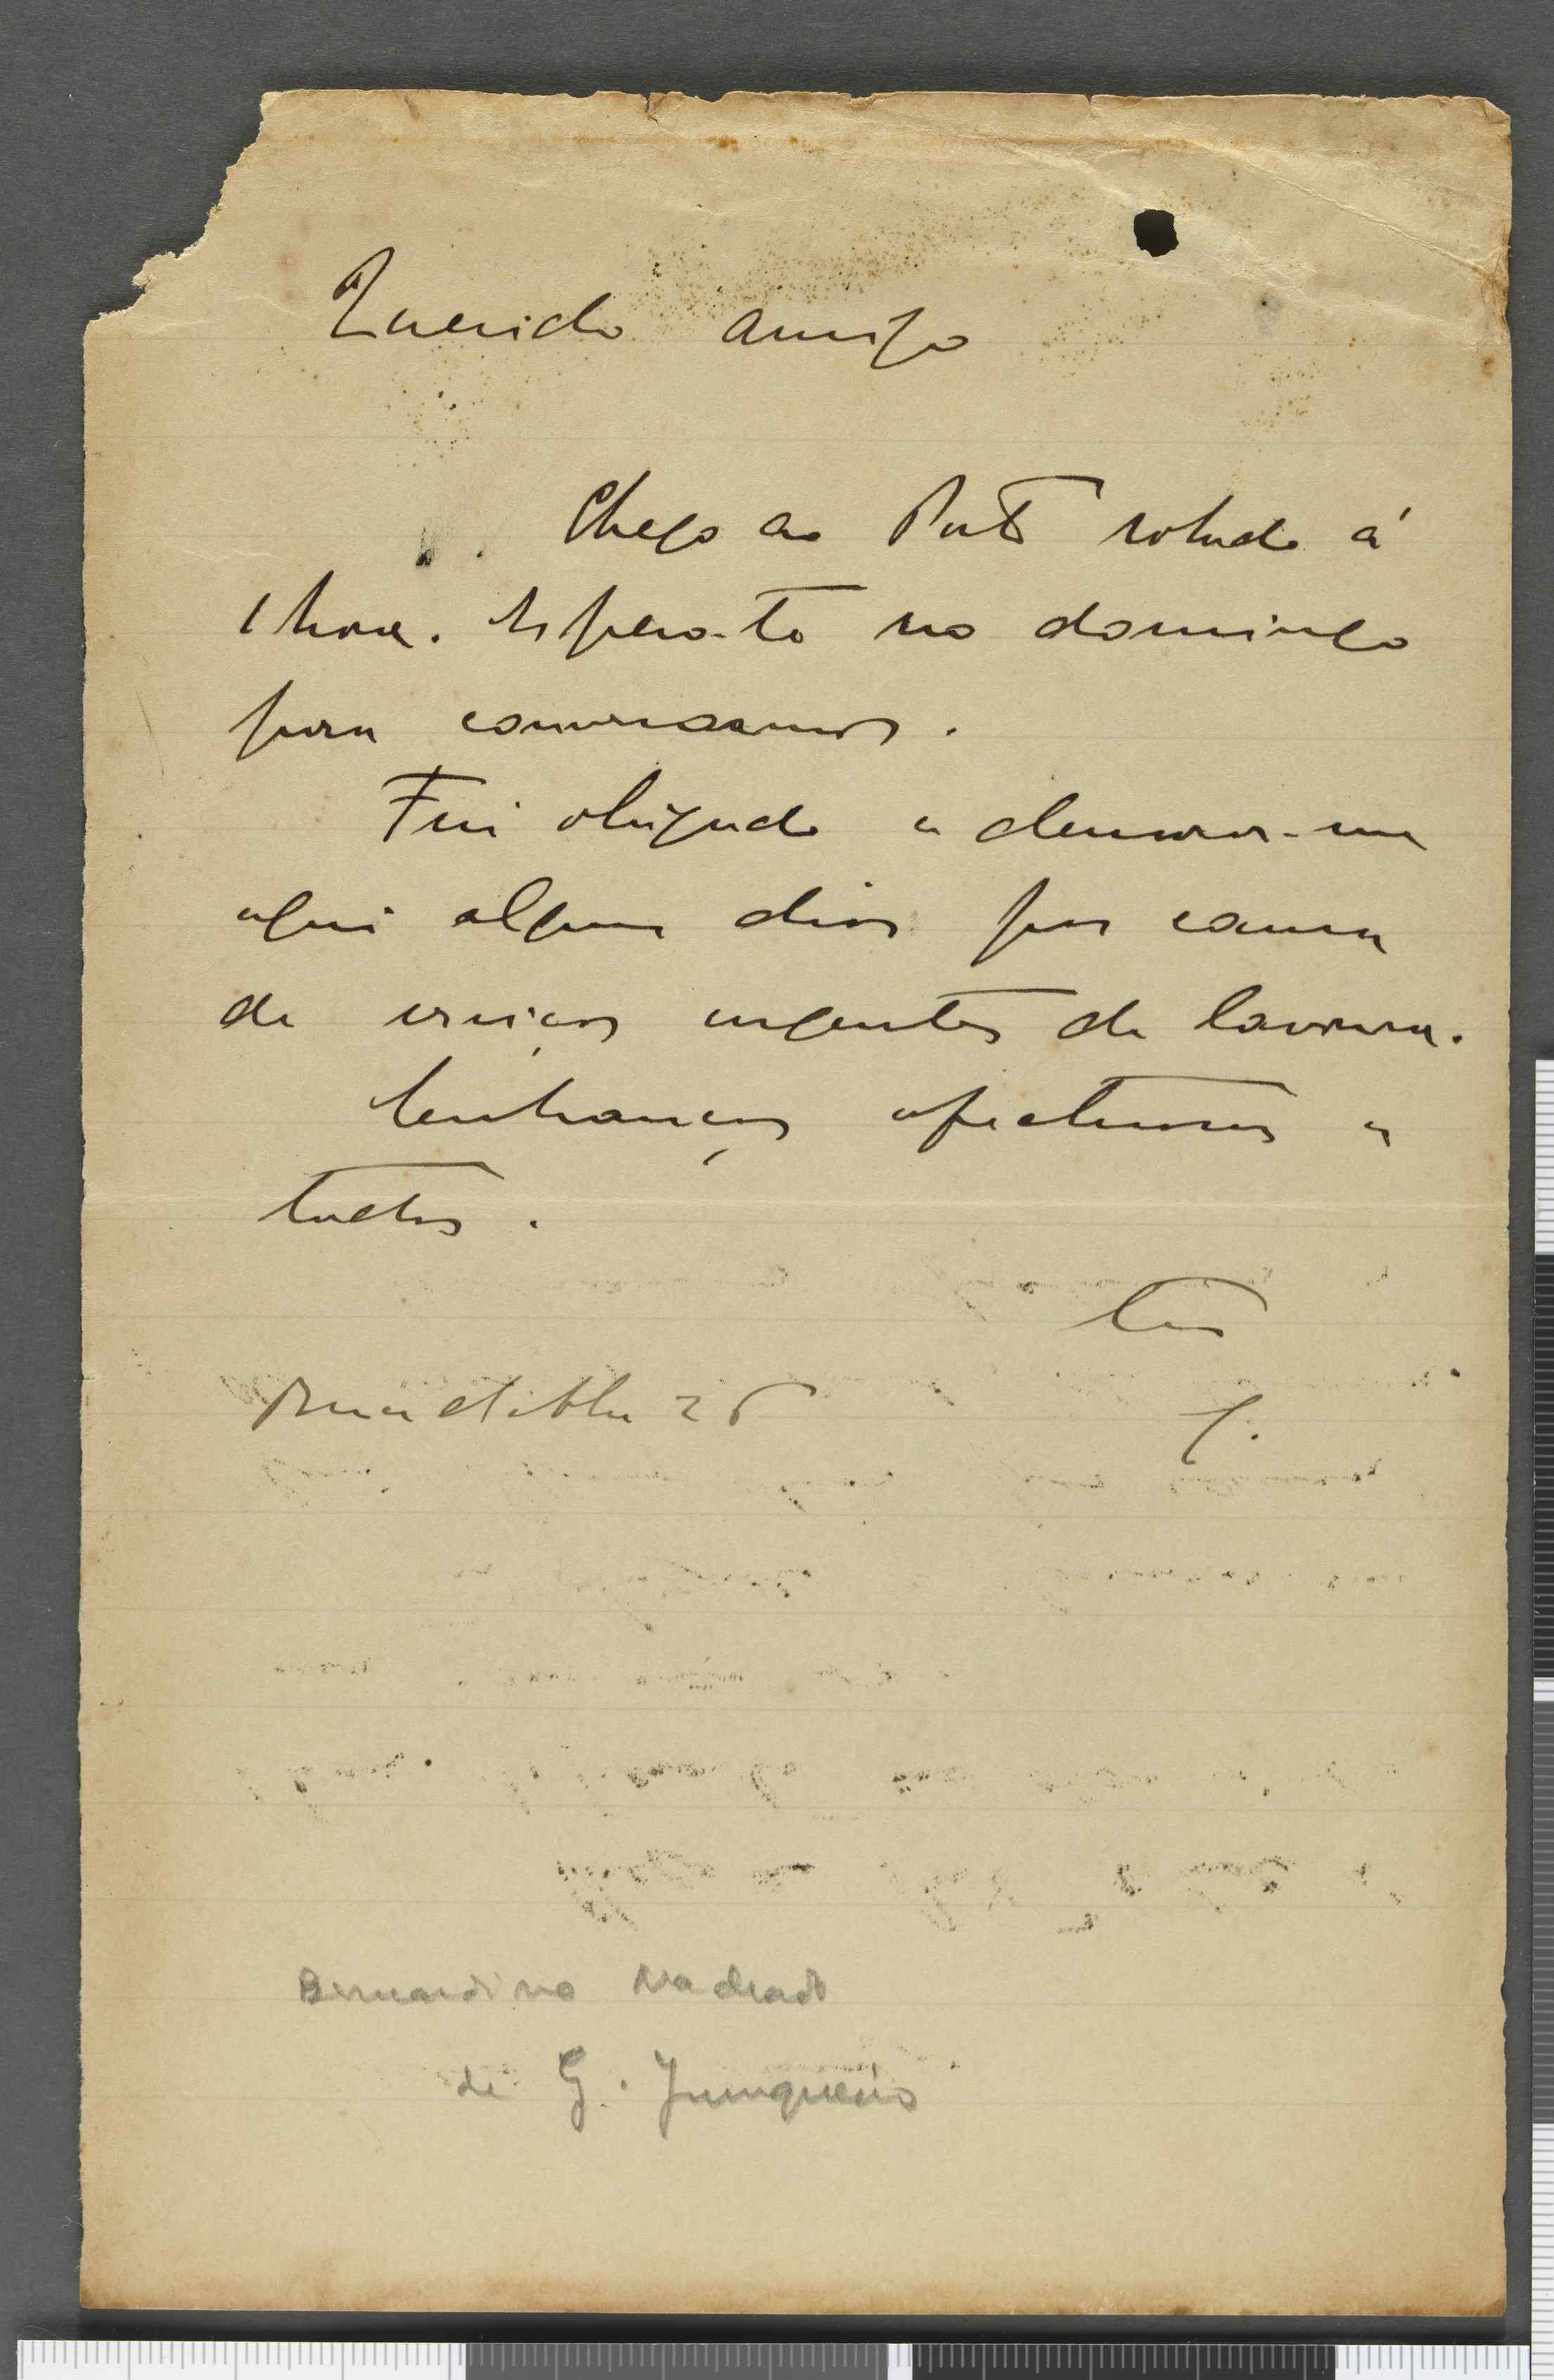 Querido amigo
Chego ao Porto sabado á
1 hora. Espero-te no domingo
para conversarmos.
Fui obrigado a demorar-me
aqui alguns dias por causa
de serviços urgentes de lavoura.
Lembranças afectuosas a
todos.
Teu
J.
Barca d'Alva 25
Bernardino Machado
de G. Junqueiro